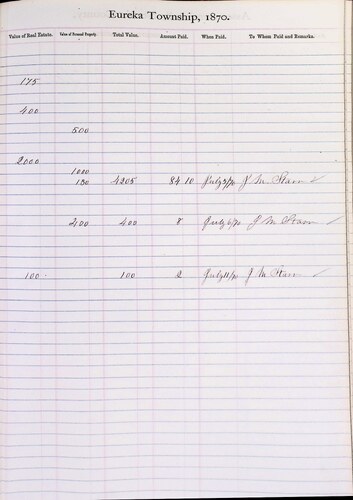 Eureka Township, 1870.
Value of Real Estate. Value of Personal Property. Total Value. Amount Paid. When Paid. To Whom Paid and Remarks.
175
400
500
2000
1000
130 4205 84 10 July J M Starr ✓
400 400 8 July J M Starr ✓
100 100 2 July 11/70 J M Starr ✓